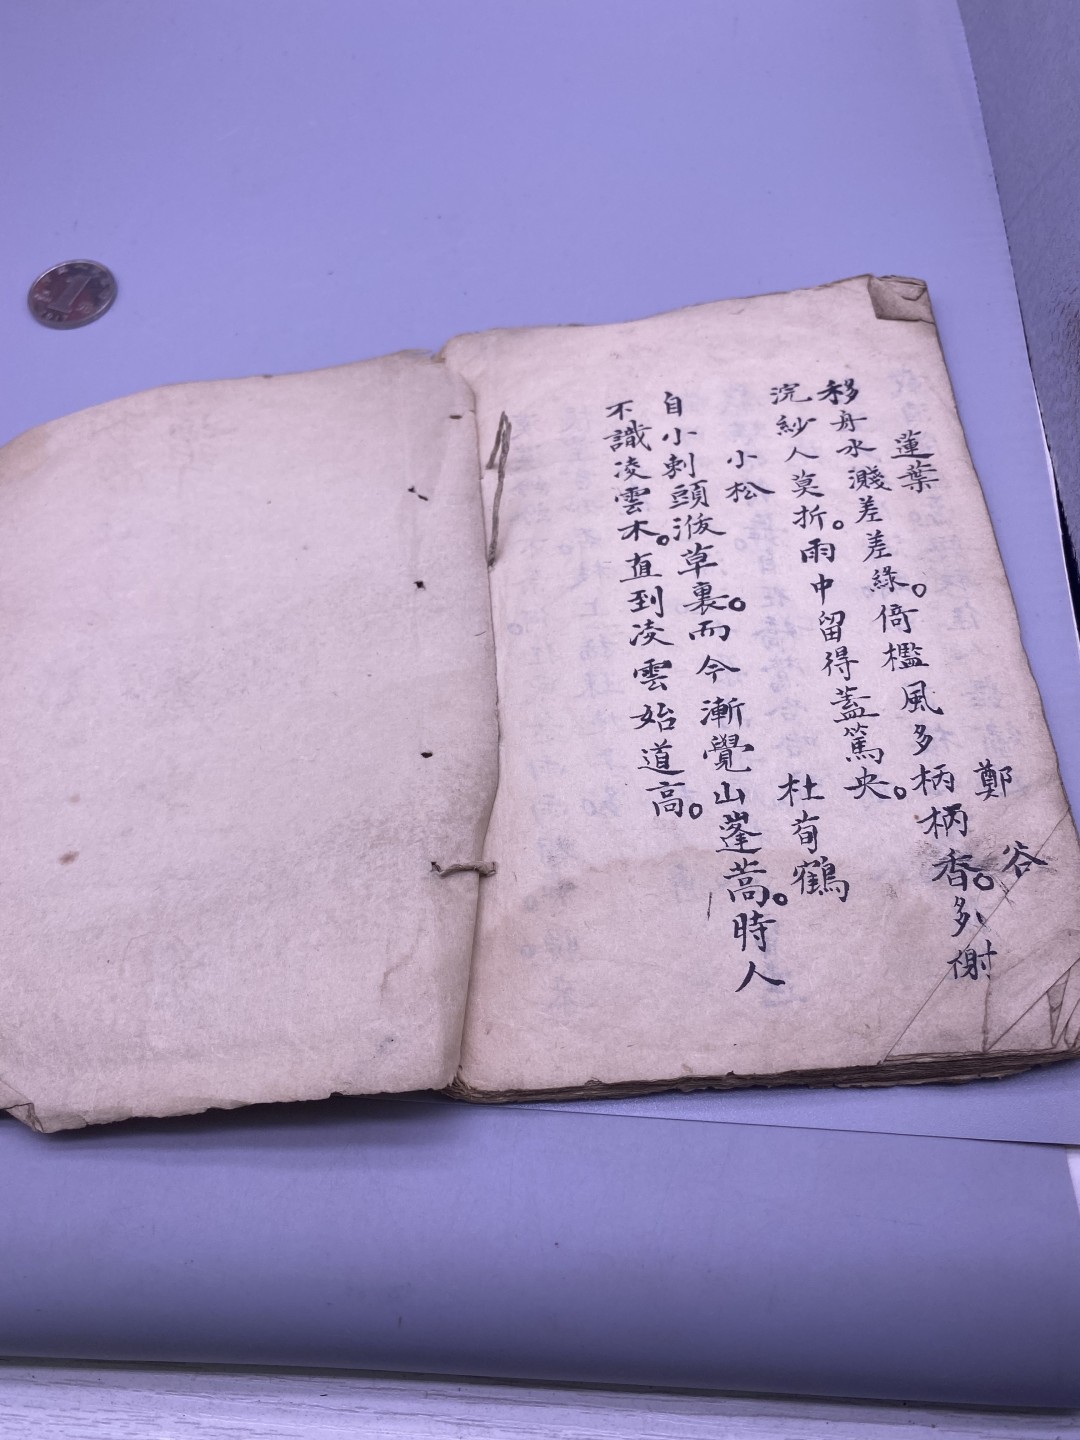 蓮葉 鄭谷
移舟水濺差差綠。倚檻風多柄柄香。多謝
浣紗人莫折。雨中留得蓋篤央。
小松 杜荀鶴
自小刺頭深草裏。而今漸覺山蓬蒿。時人
不識凌雲木。直到凌雲始道高。
1